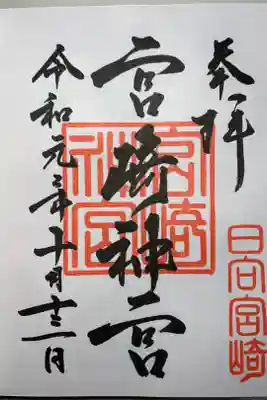 奉拝
日向宮崎
宮崎神宮
宮崎神宮
令和元年十月十二日